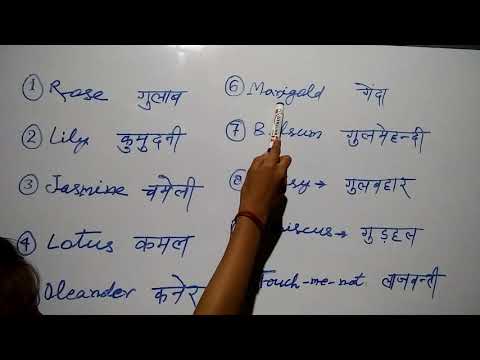 ① Rose गुलाब
② Lily कुमुदनी
③ Jasmine चमेली
④ Lotus कमल
Oleander कनेर
⑥ Marigold गेंदा
⑦ Balsum गुलमेहन्दी
⑧ sy → गुलबहार
iscus → गुड़हल
Touch-me-not लाजवन्ती